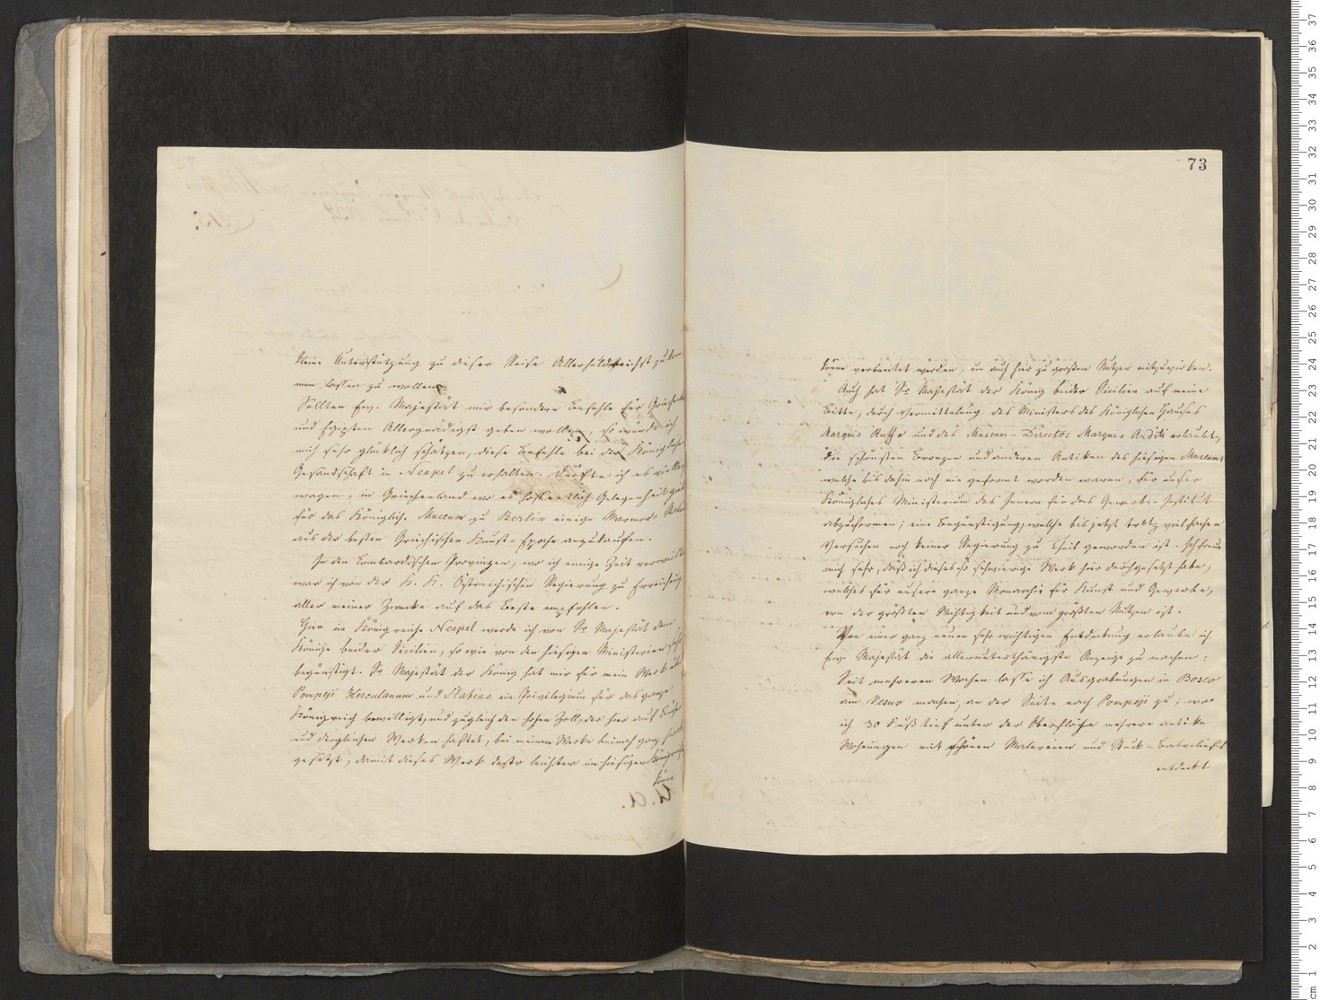 kleine Unterstützung zu dieser Reise Allerhuldreichst zukom
men lassen zu wollen.
Sollten Ew. Majestät mir besondere Befehle für Griechenl
und Egypten Allergnädigst geben wollen, so würde ich
mich sehr glücklich schätzen, diese Befehle bei der Königlichen
Gesandschaft in Neapel zu erhalten. Dürfte ich es vielleicht
wagen, in Griechenland wo es hoffentlich Gelegenheit
für das Königliche Museum zu Berlin einige Marmor-
aus der besten Griechischen Kunst-Epoche anzukaufen.
In den Lombardischen Provinzen, wo ich einige Zeit verweilte
war ich von der K. K. Östreichischen Regierung zu Erreichung
aller meiner Zwecke auf das Beste empfohlen.
Hier im Königreiche Neapel werde ich von Sr Majestät dem
Könige beider Sicilien, so wie von den hiesigen Ministerien sehr
begünstigt. Sr Majestät der König hat mir für mein Werk über
Pompeji Herculanum und Stabiae ein Privilegium für das ganze
Königreich bewilligt, und zugleich den hohen Zoll, der hier auf Bücher
und dergleichen Werken haftet, bei meinem Werke beinah ganz
gesetzt, damit dieses Werk desto leichter im hiesigen Königreiche
könne
73
könne verbreitet werden, um auch hier zu großem Nutzen mitzuwirken.
Auch hat Sr Majestät der König beider Sicilien auf meine
Bitte, durch Vermittelung des Ministers des Königlichen Hauses
Marquis Ruffo und des Museum-Director Marquis Arditi erlaubt,
die schönsten Bronzen und anderen Antiken des hiesigen Museums,
welche bis dahin noch nie geformt worden waren, für unser
Königliches Ministerium des Innern für das Gewerbe-Institut
abzuformen; eine Begünstigung, welche bis jetzt trotz vielfachen
Versuchen noch keiner Regierung zu Theil geworden ist. Ich freue
mich sehr, daß ich dieses so schwierige Werk hier durchgesetzt habe,
welches für unsere ganze Monarchie für Kunst und Gewerbe,
von der größten Wichtigkeit und vom größten Nutzen ist.
Von einer ganz neuen sehr wichtigen Entdeckung erlaube ich
Ew. Majestät die allerunterthänigste Anzeige zu machen:
Seit mehreren Wochen lasse ich Ausgrabungen in Bosco
am Vesuv machen, an der Seite nach Pompeji zu; wo
ich 30 Fuß tief unter der Oberfläche mehrere antike
Wohnungen mit schönen Malereien und Stuk-Basreliefs
entdeckt